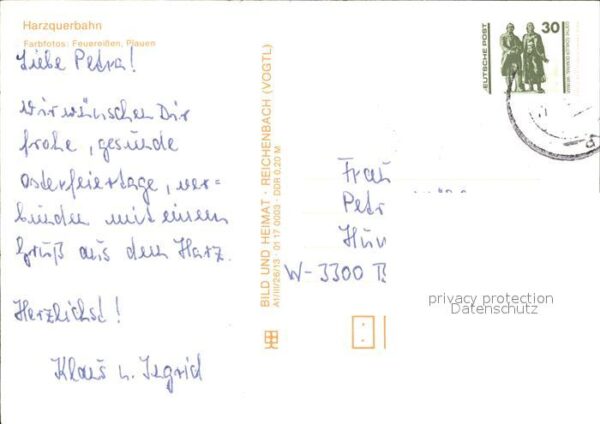 Harzquerbahn
Farbfotos: Feuereißen, Plauen
Liebe Petra!
Wir wünschen Dir
frohe, gesunde
Osterfeiertage, ver-
bunden mit einem
Gruß aus dem Harz.
Herzlichst!
Klaus u. Ingrid
BILD UND HEIMAT · REICHENBACH (VOGTL)
A1/III/26/13 · 01 17 0003 · DDR 0,20 M
30
DEUTSCHE POST
Frau
Petr
W-3300 B
privacy protection
Datenschutz